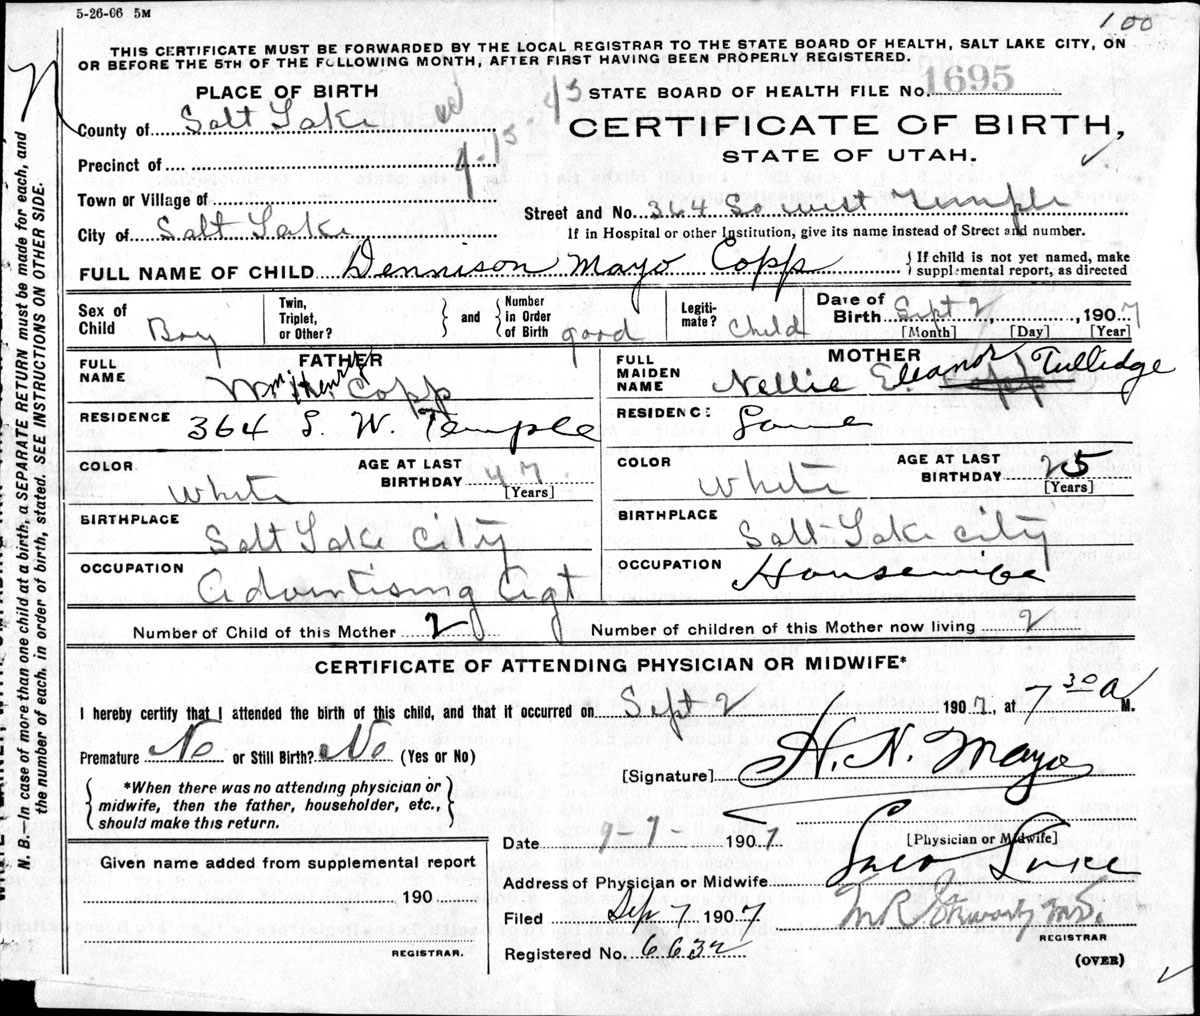 5-26-06 5M
100
THIS CERTIFICATE MUST BE FORWARDED BY THE LOCAL REGISTRAR TO THE STATE BOARD OF HEALTH, SALT LAKE CITY, ON
OR BEFORE THE 5TH OF THE FOLLOWING MONTH, AFTER FIRST HAVING BEEN PROPERLY REGISTERED.
PLACE OF BIRTH
STATE BOARD OF HEALTH FILE No. 1695
County of Salt Lake
CERTIFICATE OF BIRTH,
STATE OF UTAH.
Precinct of
Town or Village of
Street and No. 364 So West Temple
City of Salt Lake
If in Hospital or other Institution, give its name instead of Street and number.
FULL NAME OF CHILD Dennison Mayo Copp
If child is not yet named, make
supplemental report, as directed
Sex of Child Boy
Twin, Triplet, or Other?
and
Number in Order of Birth good
Legitimate? Child
Date of Birth Sept 2, 1907
[Month] [Day] [Year]
FATHER
FULL NAME Wm Henry Copp
RESIDENCE 364 S. W. Temple
COLOR White
AGE AT LAST BIRTHDAY 47 [Years]
BIRTHPLACE Salt Lake City
OCCUPATION Advertising Agt
MOTHER
FULL MAIDEN NAME Nellie Eleanor Copp Tullidge
RESIDENCE Same
COLOR White
AGE AT LAST BIRTHDAY 25 [Years]
BIRTHPLACE Salt Lake City
OCCUPATION Housewife
Number of Child of this Mother 2
Number of children of this Mother now living 2
CERTIFICATE OF ATTENDING PHYSICIAN OR MIDWIFE*
I hereby certify that I attended the birth of this child, and that it occurred on Sept 2 1907, at 7 30 A M.
Premature No or Still Birth? No (Yes or No)
[Signature] H. N. Mayo
*When there was no attending physician or
midwife, then the father, householder, etc.,
should make this return.
[Physician or Midwife]
Date 9-7- 1907
Given name added from supplemental report
190
REGISTRAR.
Address of Physician or Midwife
Filed Sep 7 1907
REGISTRAR
Registered No. 6632
(OVER)
N. B.—In case of more than one child at a birth, a SEPARATE RETURN must be made for each, and
the number of each, in order of birth, stated. SEE INSTRUCTIONS ON OTHER SIDE.